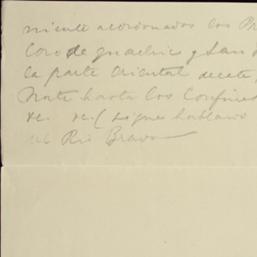 miente acordonados los Pr
Coro de guachic y San
la parte Oriental
Norte hasta los Confines
&c. &c. (sigue hablando
del Rio Bravo